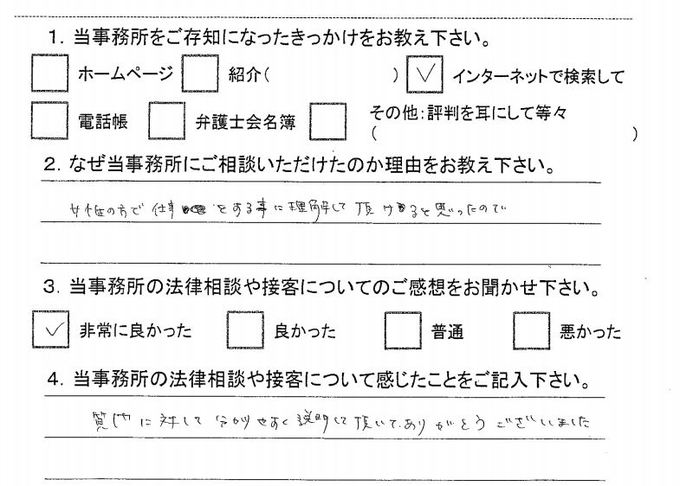 1. 当事務所をご存知になったきっかけをお教え下さい。
ホームページ 紹介( ) ✓ インターネットで検索して
電話帳 弁護士会名簿 その他:評判を耳にして等々
( )
2. なぜ当事務所にご相談いただけたのか理由をお教え下さい。
女性の方で 仕事 をする事に理解して頂けると思ったので
3. 当事務所の法律相談や接客についてのご感想をお聞かせ下さい。
✓ 非常に良かった 良かった 普通 悪かった
4. 当事務所の法律相談や接客について感じたことをご記入下さい。
質問に対して分かりやすく説明して頂いて、ありがとうございました